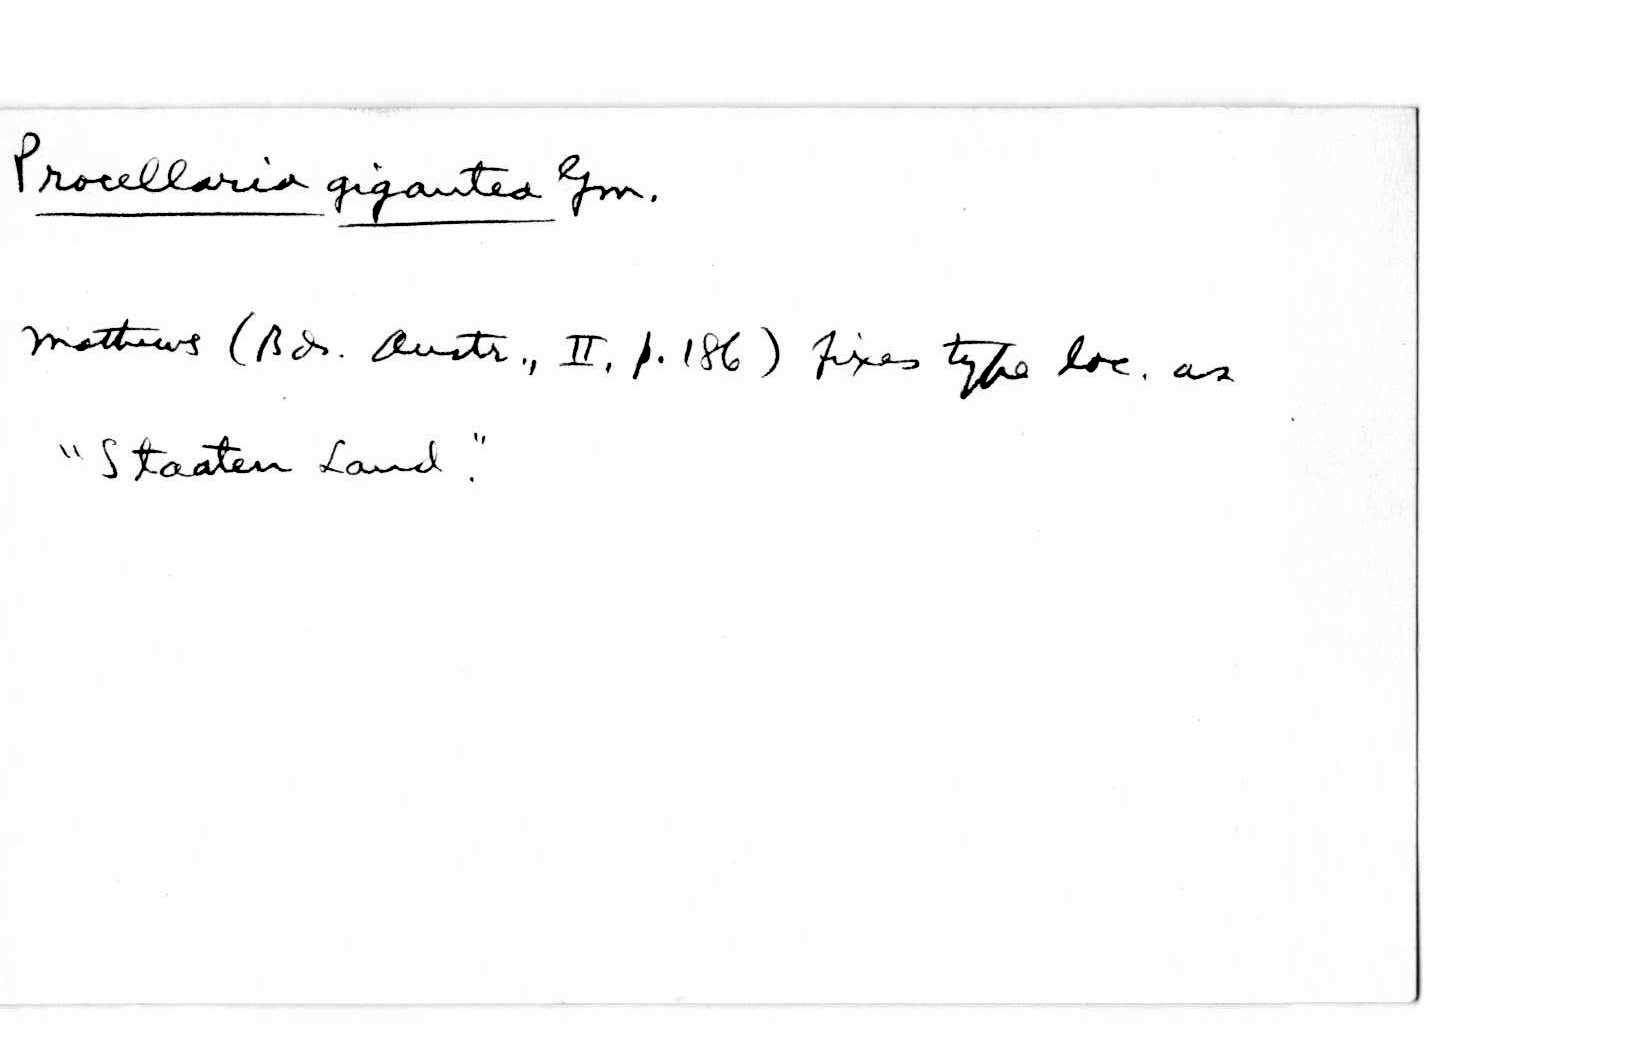 Procellaria gigantea Gm.
Mathews (Bds. Austr., II, p. 186) fixes type loc. as
"Staaten Land".